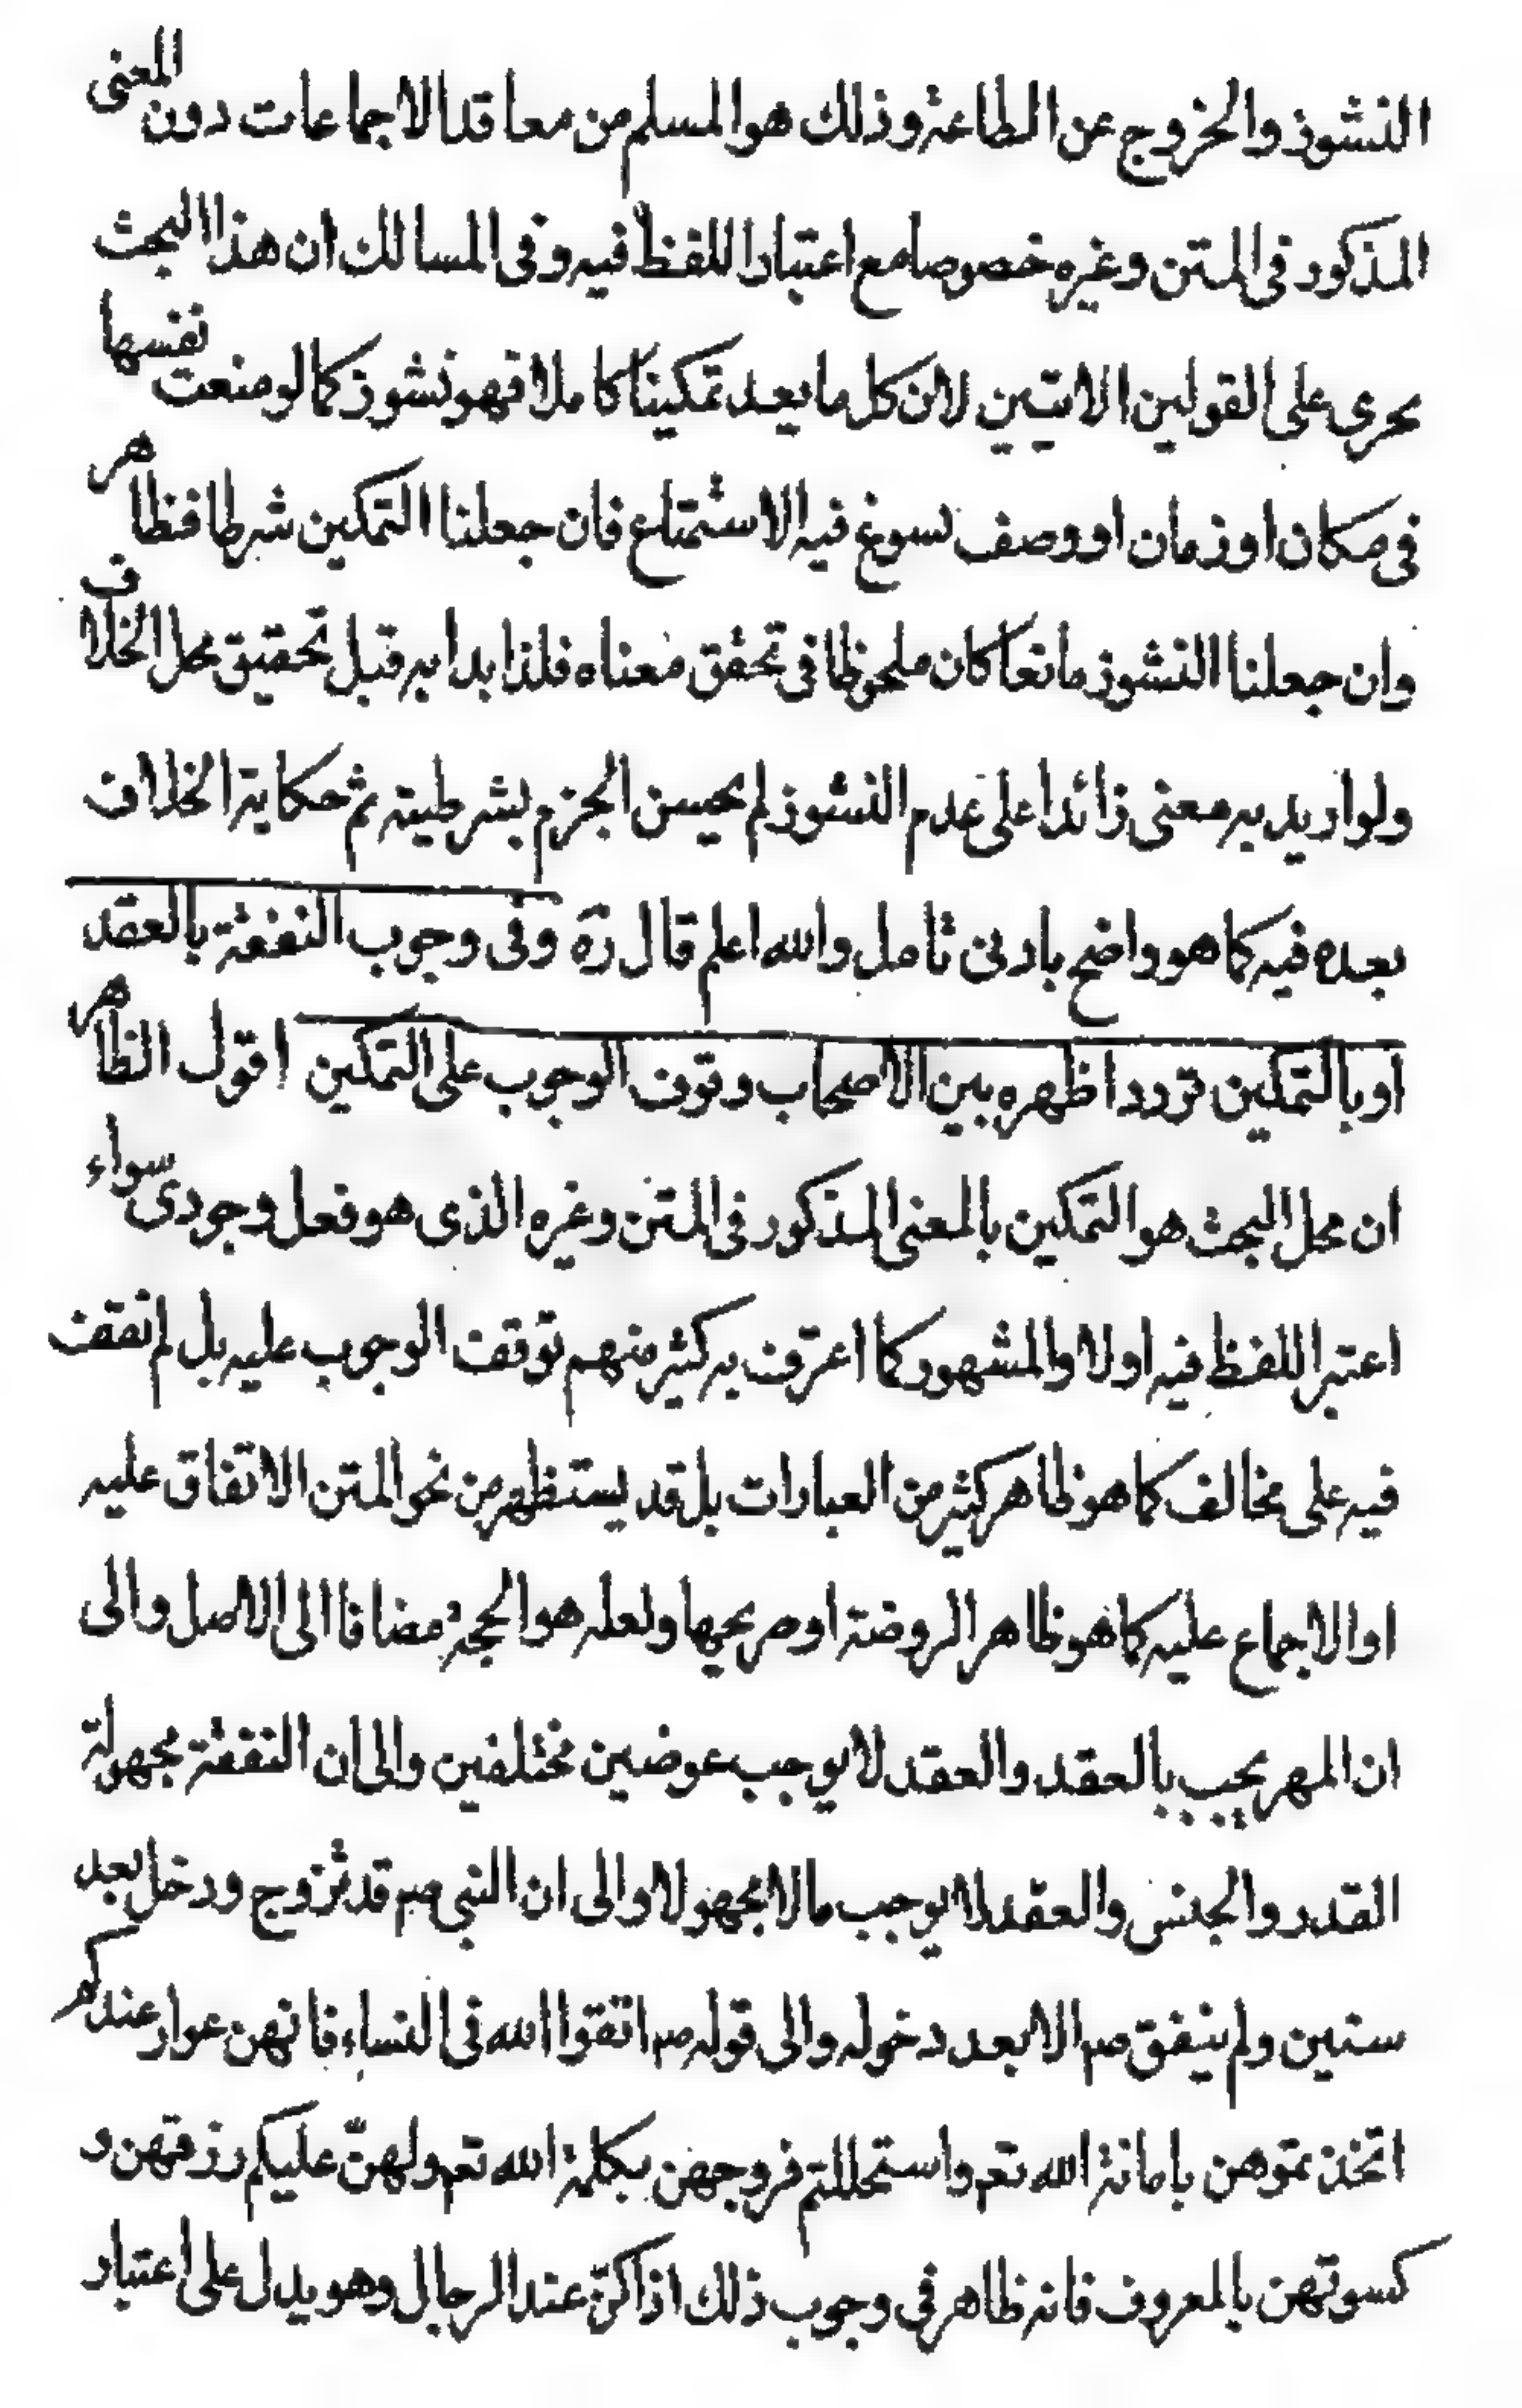 النشوز والخروج عن الطاعة وذلك هو المسلم من معاقد الاجماعات دون المعنى
المذكور فى المتن وغيره خصوصا مع اعتبار اللفظ فيه وفى المسالك ان هذا البحث
يجرى على القولين الاتيين لان كل ما يعد تمكينا كاملا فهو نشوز كما لو منعت نفسها
فى مكان او زمان او وصف يسوغ فيه الاستمتاع فان جعلنا التمكين شرطا فظاهر
وان جعلنا النشوز مانعا كان ملحوظا فى تحقق معناه فلذا بدا به قبل تحقيق محل الخلاف
ولو اريد به معنى زائدا على عدم النشوز لم يحسن الجزم بشرطيته ثم حكاية الخلاف
بعده فيه كما هو واضح بادنى تامل والله اعلم قال ره وفى وجوب النفقة بالعقد
او بالتمكين تردد اظهره بين الاصحاب وقوف الوجوب على التمكين اقول الظاهر
ان محل البحث هو التمكين بالمعنى المذكور فى المتن وغيره الذى هو فعل وجودى سواء
اعتبر اللفظ فيه اولا والمشهور كما اعترف به كثير منهم توقف الوجوب عليه بل لم نقف
فيه على مخالف كما هو ظاهر كثير من العبارات بل قد يستظهر من نحو المتن الاتفاق عليه
او الاجماع عليه كما هو ظاهر الروضة او صريحها ولعله هو الحجة مضافا الى الاصل والى
ان المهر يجب بالعقد والعقد لا يوجب عوضين مختلفين والى ان النفقة مجهولة
القدر والجنس والعقد لا يوجب مالا مجهولا والى ان النبي صم قد تزوج ودخل بعد
سنين ولم ينفق صم الا بعد دخوله والى قوله صم اتقوا الله فى النساء فانهن عوار عندكم
اتخذتموهن بامانة الله تعم واستحللتم فروجهن بكلمة الله تعم ولهنّ عليكم رزقهن و
كسوتهن بالمعروف فانه ظاهر فى وجوب ذلك اذا كنّ عند الرجال وهو يدل على اعتبار